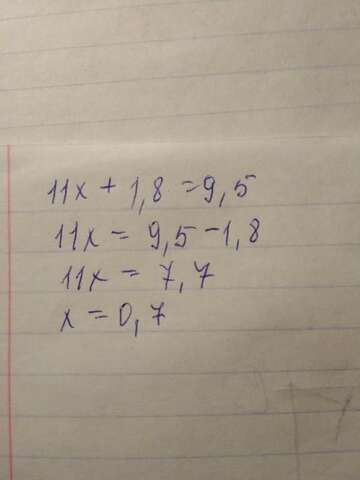 11x + 1,8 = 9,5
11x = 9,5 - 1,8
11x = 7,7
x = 0,7